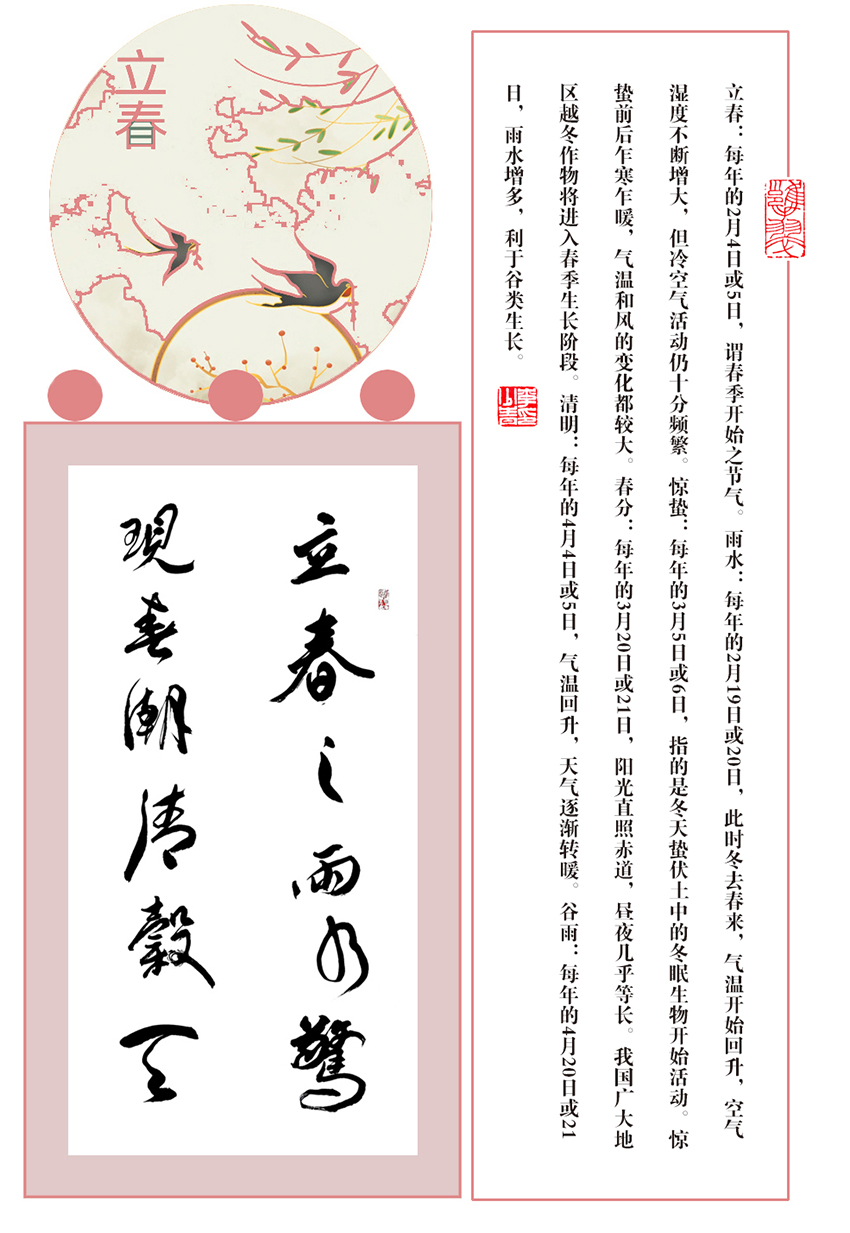 立春
立春：每年的2月4日或5日，谓春季开始之节气。雨水：每年的2月19日或20日，此时冬去春来，气温开始回升，空气
湿度不断增大，但冷空气活动仍十分频繁。惊蛰：每年的3月5日或6日，指的是冬天蛰伏土中的冬眠生物开始活动。惊
蛰前后乍寒乍暖，气温和风的变化都较大。春分：每年的3月20日或21日，阳光直照赤道，昼夜几乎等长。我国广大地
区越冬作物将进入春季生长阶段。清明：每年的4月4日或5日，气温回升，天气逐渐转暖。谷雨：每年的4月20日或21
日，雨水增多，利于谷类生长。
立春之雨水驚
現春潮清穀天